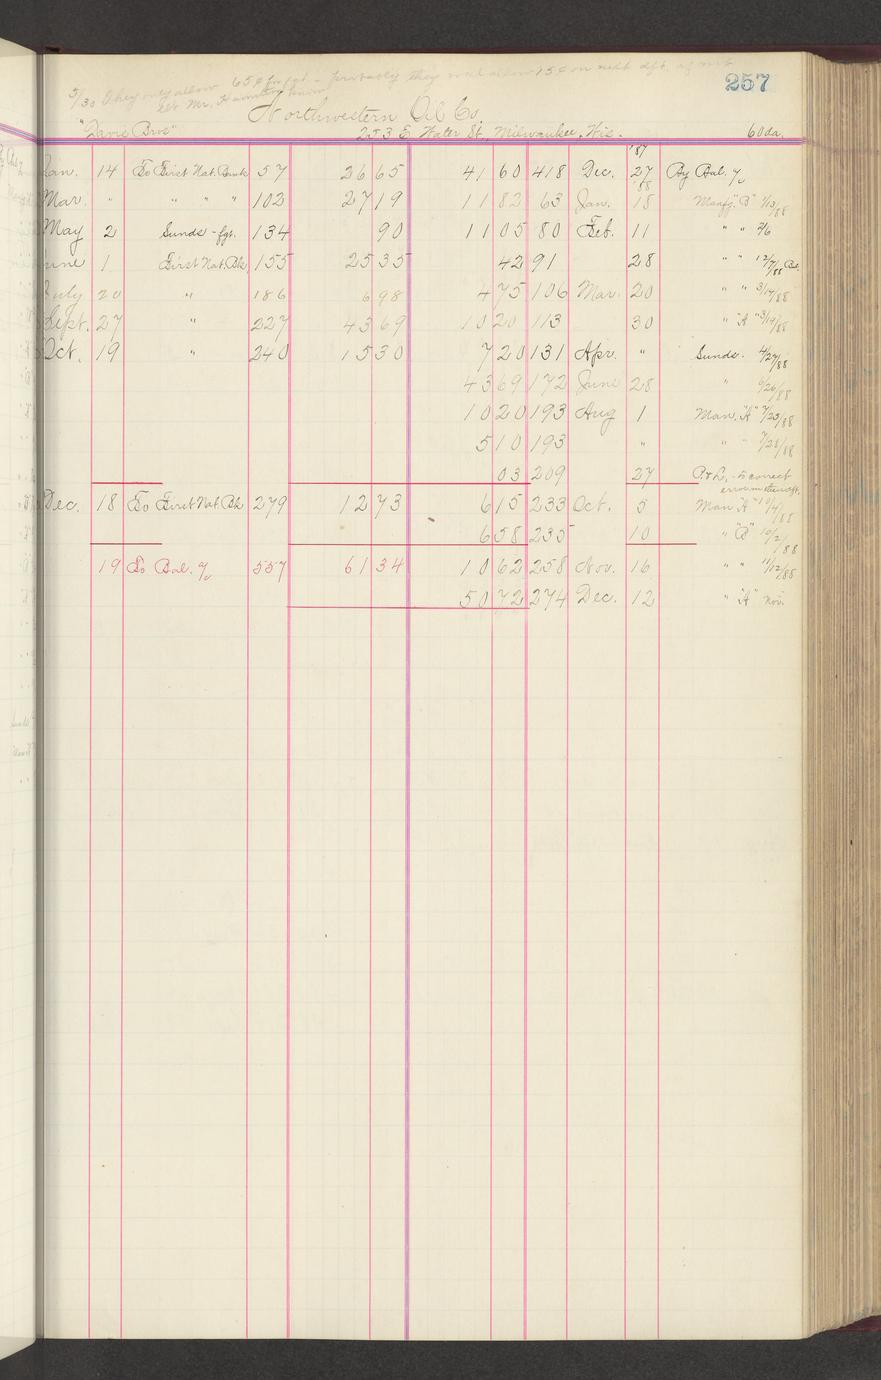 257
5/30 They only allow 65¢ for fgt. - probably they will allow 15¢ on
let Mr. Hamilton know
Northwestern Oil Co.
"Davis Bros" 253 E. Water St., Milwaukee, Wis. 60 da.
'87
Jan. 14 To First Nat. Bank 57 26 65 41 60 418 Dec. 27 By Bal. %
'88
Mar. " " " " 102 27 19 11 82 63 Jan. 18 Manfg. "B" 1/13/88
May 2 Sunds - fgt. 134 90 11 05 80 Feb. 11 " " 2/6
June 1 First Nat. Bk 155 25 35 42 91 28 " " 12/7/88 Bal.
July 20 " 186 6 98 4 75 106 Mar. 20 " " 3/14/88
Sept. 27 " 227 43 69 10 20 113 30 " "A" 3/19/88
Oct. 19 " 240 15 30 7 20 131 Apr. " Sunds. 4/27/88
43 69 172 June 28 " 6/26/88
10 20 193 Aug 1 Man. "A" 7/23/88
5 10 193 " " " 7/28/88
03 209 27 P. & L. - to correct
Dec. 18 To First Nat. Bk 279 12 73 6 15 233 Oct. 5 Man "A" 10/4/88
6 58 235 10 " "B" 10/2/88
19 To Bal. % 557 61 34 10 62 258 Nov. 16 " " 11/12/88
50 72 274 Dec. 12 " "A" Nov.